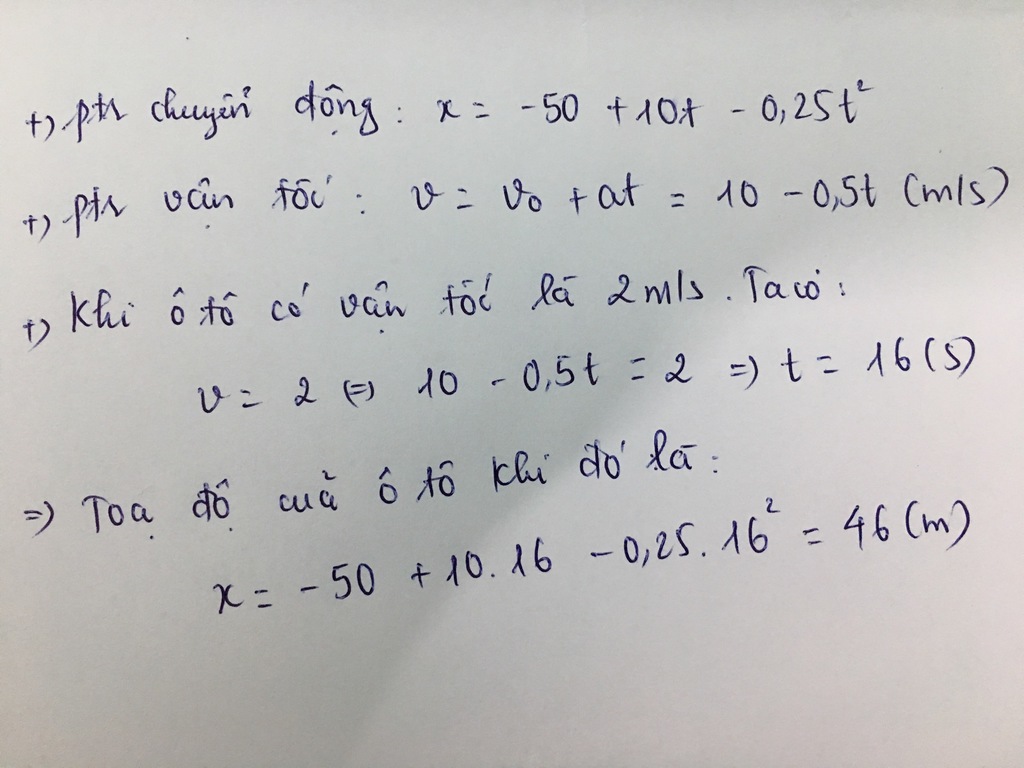 +) ptr chuyển động: x = -50 + 10t - 0,25t²
+) ptr vận tốc: v = v₀ + at = 10 - 0,5t (m/s)
+) Khi ô tô có vận tốc là 2m/s. Ta có:
v = 2 (=) 10 - 0,5t = 2 =) t = 16 (s)
=) Toạ độ cuả ô tô khi đó là:
x = -50 + 10.16 - 0,25.16² = 46 (m)